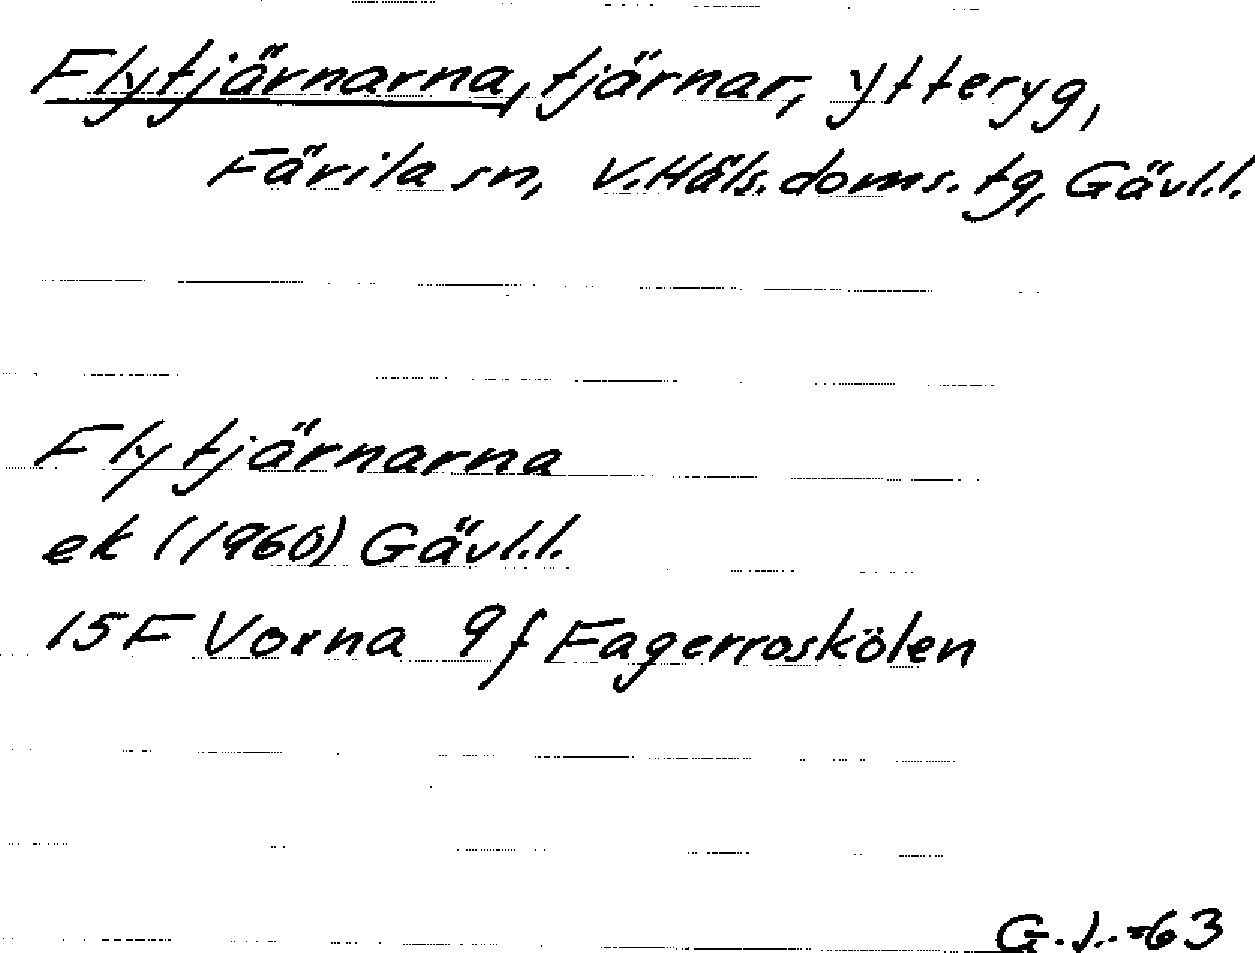 Flytjärnarna, tjärnar, Ytteryg,
Färila sn, V.Häls.doms.tg, Gävl.l.
Flytjärnarna
ek (1960) Gävl.l.
15F Voxna 9f Fagerroskölen
G.J.-63